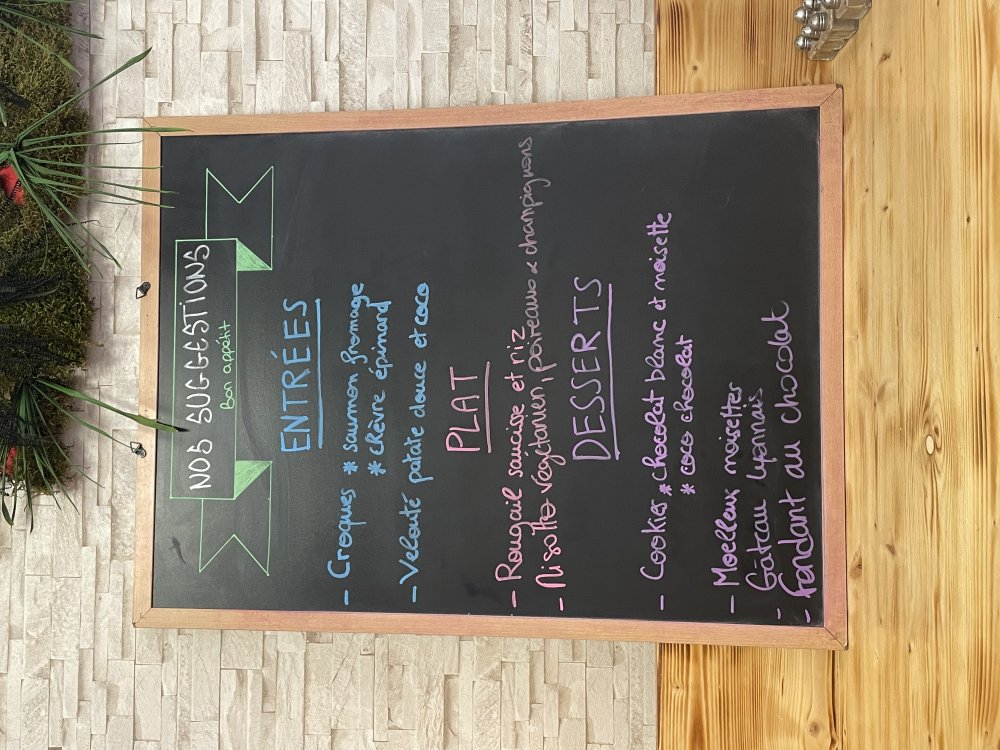 NOS SUGGESTIONS
Bon appétit
ENTRÉES
- Croques * saumon fromage
* chèvre épinard
- Velouté patate douce et coco
PLAT
- Rougail saucisse et riz
- Risotto végétarien, poireaux & champignons
DESSERTS
- Cookies * chocolat blanc et noisette
* coco chocolat
- Moelleux noisettes
- Gâteau lyonnais
- Fondant au chocolat